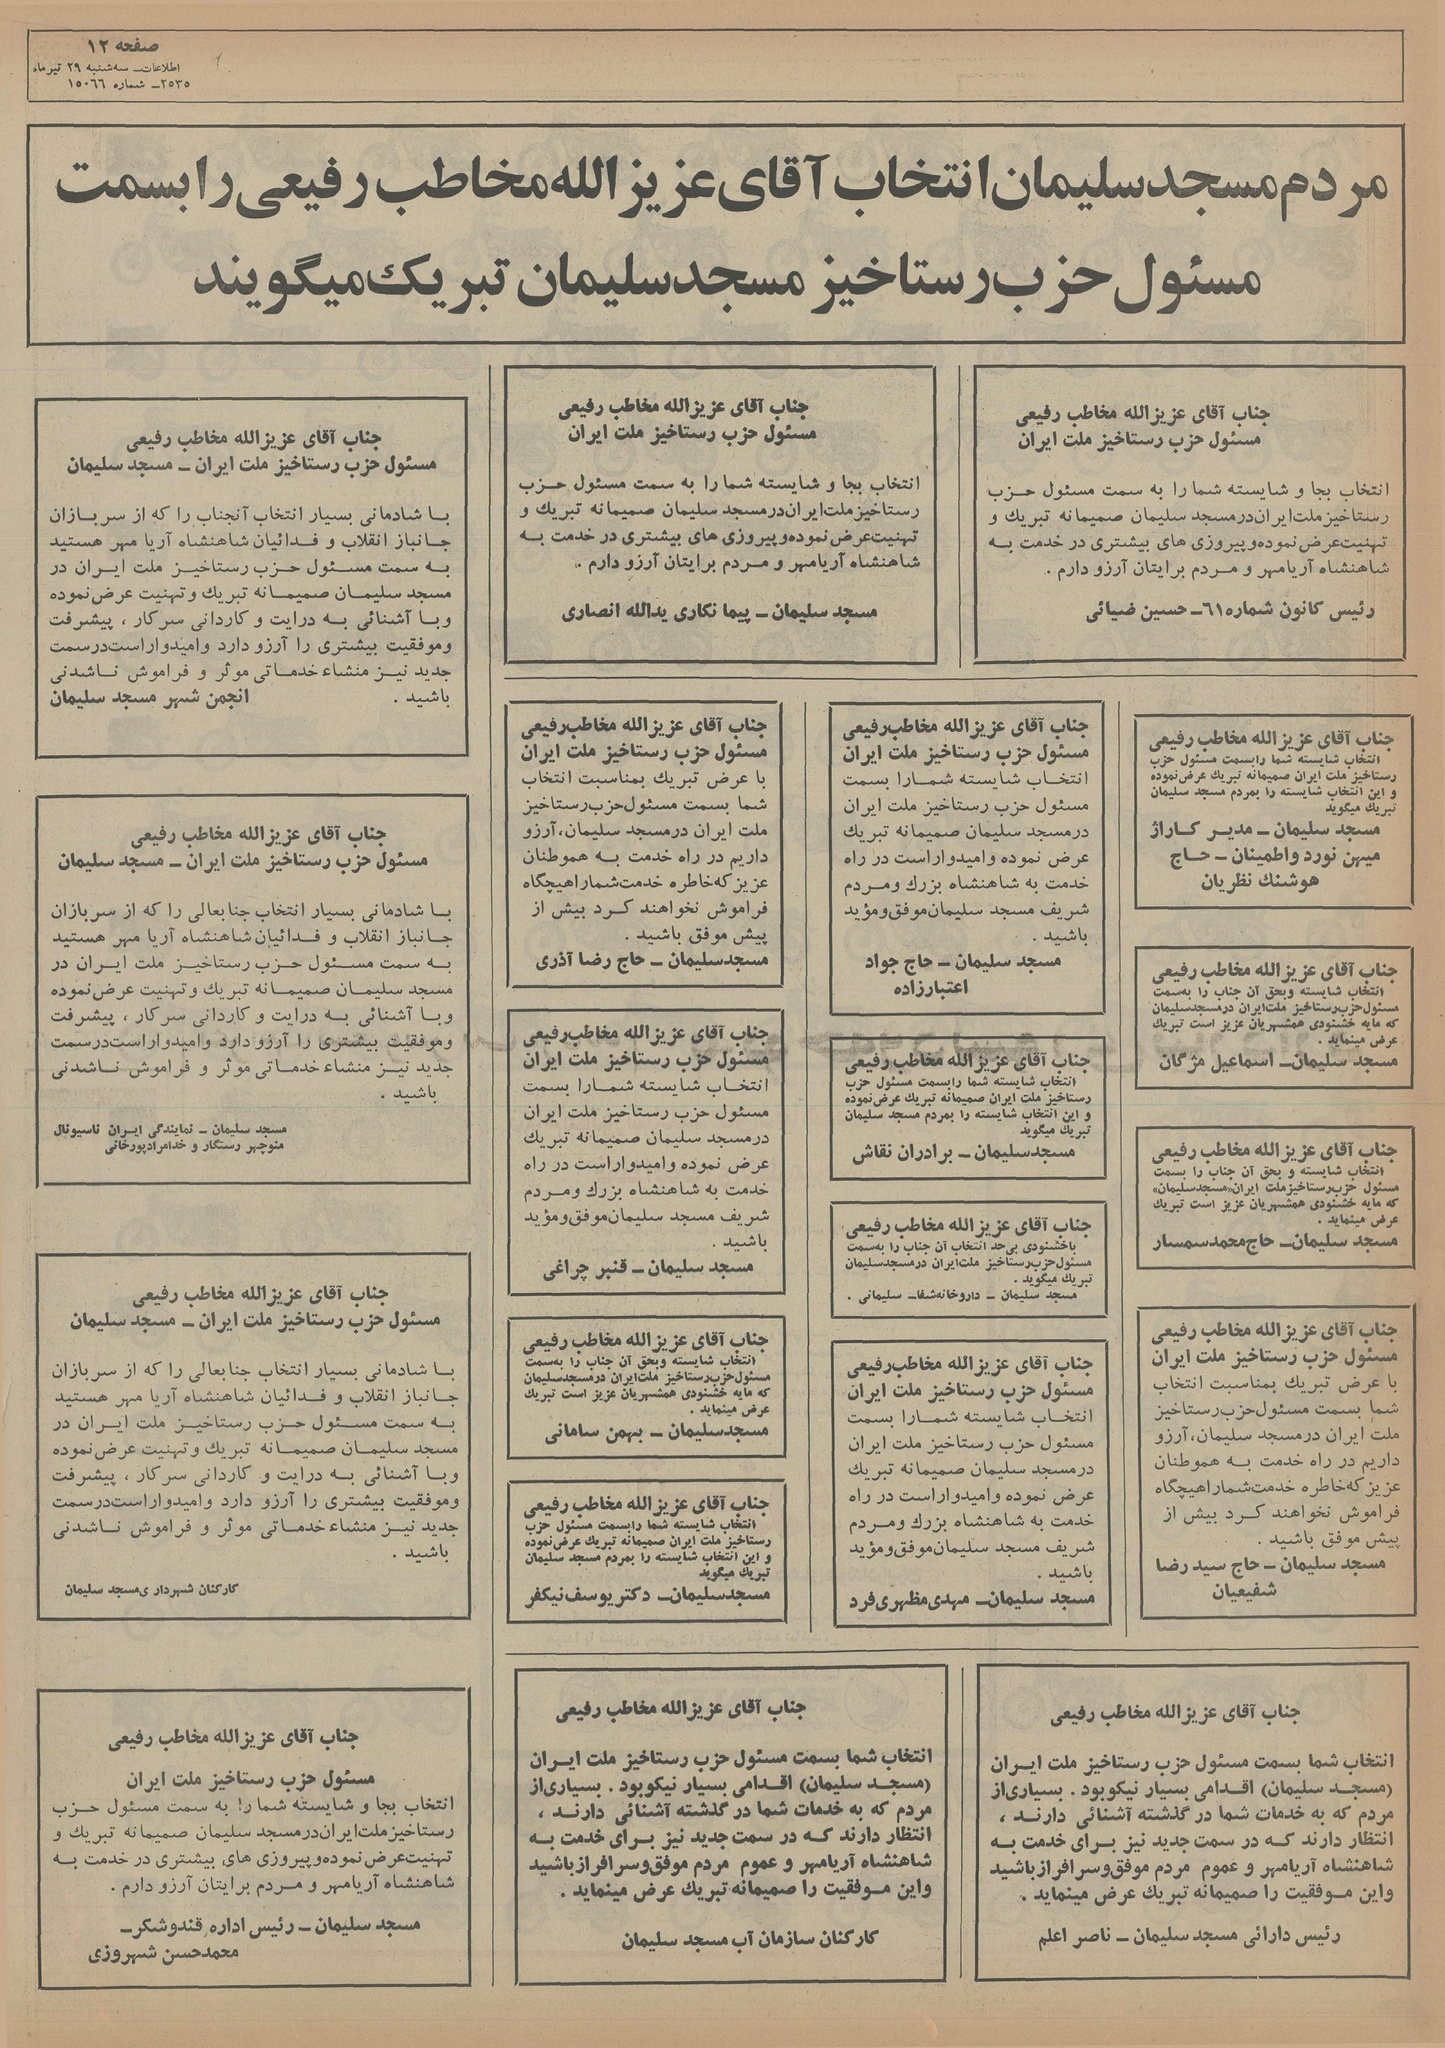 صفحه ۱۲
اطلاعات ـ سه‌شنبه ۲۹ تیرماه
۲۵۳۵ ـ شماره ۱۵۰۶۶
مردم مسجد سلیمان انتخاب آقای عزیزالله مخاطب رفیعی را بسمت
مسئول حزب رستاخیز مسجد سلیمان تبریک میگویند
جناب آقای عزیزالله مخاطب رفیعی
مسئول حزب رستاخیز ملت ایران
انتخاب بجا و شایسته شما را به سمت مسئول حزب
رستاخیز ملت ایران در مسجد سلیمان صمیمانه تبریك و
تهنیت عرض نموده و پیروزی های بیشتری در خدمت به
شاهنشاه آریامهر و مردم برایتان آرزو دارم .
رئیس کانون شماره ۶۱ ـ حسین ضیائی
جناب آقای عزیزالله مخاطب رفیعی
مسئول حزب رستاخیز ملت ایران
انتخاب بجا و شایسته شما را به سمت مسئول حزب
رستاخیز ملت ایران در مسجد سلیمان صمیمانه تبریك و
تهنیت عرض نموده و پیروزی های بیشتری در خدمت به
شاهنشاه آریامهر و مردم برایتان آرزو دارم .
مسجد سلیمان ـ پیما نکاری یدالله انصاری
جناب آقای عزیزالله مخاطب رفیعی
مسئول حزب رستاخیز ملت ایران ـ مسجد سلیمان
با شادمانی بسیار انتخاب آنجناب را که از سربازان
جانباز انقلاب و فدائیان شاهنشاه آریا مهر هستید
به سمت مسئول حزب رستاخیز ملت ایران در
مسجد سلیمان صمیمانه تبریك و تهنیت عرض نموده
و با آشنائی به درایت و کاردانی سرکار ، پیشرفت
و موفقیت بیشتری را آرزو دارد و امیدوار است در سمت
جدید نیز منشاء خدماتی موثر و فراموش ناشدنی
باشید . انجمن شهر مسجد سلیمان
جناب آقای عزیزالله مخاطب رفیعی
انتخاب شایسته شما را بسمت مسئول حزب
رستاخیز ملت ایران صمیمانه تبریك عرض نموده
و این انتخاب شایسته را بمردم مسجد سلیمان
تبریك میگوید
مسجد سلیمان ـ مدیر گاراژ
میهن نورد و اطمینان ـ حاج
هوشنگ نظریان
جناب آقای عزیزالله مخاطب رفیعی
انتخاب شایسته وبحق آن جناب را به‌سمت
مسئول حزب رستاخیز ملت ایران در مسجد سلیمان
که مایه خشنودی همشهریان عزیز است تبریك
عرض مینماید .
مسجد سلیمان ـ اسماعیل مژگان
جناب آقای عزیزالله مخاطب رفیعی
انتخاب شایسته و بحق آن جناب را بسمت
مسئول حزب رستاخیز ملت ایران «مسجد سلیمان»
که مایه خشنودی همشهریان عزیز است تبریك
عرض مینماید .
مسجد سلیمان ـ حاج محمد سمسار
جناب آقای عزیزالله مخاطب رفیعی
مسئول حزب رستاخیز ملت ایران
با عرض تبریك بمناسبت انتخاب
شما بسمت مسئول حزب رستاخیز
ملت ایران در مسجد سلیمان، آرزو
داریم در راه خدمت به هموطنان
عزیز که خاطره خدمت شما را هیچگاه
فراموش نخواهند کرد بیش از
پیش موفق باشید .
مسجد سلیمان ـ حاج سید رضا
شفیعیان
جناب آقای عزیزالله مخاطب رفیعی
مسئول حزب رستاخیز ملت ایران
انتخاب شایسته شما را بسمت
مسئول حزب رستاخیز ملت ایران
در مسجد سلیمان صمیمانه تبریك
عرض نموده و امیدوار است در راه
خدمت به شاهنشاه بزرك و مردم
شریف مسجد سلیمان موفق و مؤید
باشید .
مسجد سلیمان ـ حاج جواد
اعتبارزاده
جناب آقای عزیزالله مخاطب رفیعی
انتخاب شایسته شما را بسمت مسئول حزب
رستاخیز ملت ایران صمیمانه تبریك عرض نموده
و این انتخاب شایسته را بمردم مسجد سلیمان
تبریك میگوید
مسجد سلیمان ـ برادران نقاش
جناب آقای عزیزالله مخاطب رفیعی
با خشنودی بی‌حد انتخاب آن جناب را به‌سمت
مسئول حزب رستاخیز ملت ایران در مسجد سلیمان
تبریك میگوید .
مسجد سلیمان ـ داروخانه شفا ـ سلیمانی .
جناب آقای عزیزالله مخاطب رفیعی
مسئول حزب رستاخیز ملت ایران
انتخاب شایسته شما را بسمت
مسئول حزب رستاخیز ملت ایران
در مسجد سلیمان صمیمانه تبریك
عرض نموده و امیدوار است در راه
خدمت به شاهنشاه بزرك و مردم
شریف مسجد سلیمان موفق و مؤید
باشید .
مسجد سلیمان ـ مهدی مظهری فرد
جناب آقای عزیزالله مخاطب رفیعی
مسئول حزب رستاخیز ملت ایران
با عرض تبریك بمناسبت انتخاب
شما بسمت مسئول حزب رستاخیز
ملت ایران در مسجد سلیمان، آرزو
داریم در راه خدمت به هموطنان
عزیز که خاطره خدمت شما را هیچگاه
فراموش نخواهند کرد بیش از
پیش موفق باشید .
مسجد سلیمان ـ حاج رضا آذری
جناب آقای عزیزالله مخاطب رفیعی
مسئول حزب رستاخیز ملت ایران
انتخاب شایسته شما را بسمت
مسئول حزب رستاخیز ملت ایران
در مسجد سلیمان صمیمانه تبریك
عرض نموده و امیدوار است در راه
خدمت به شاهنشاه بزرك و مردم
شریف مسجد سلیمان موفق و مؤید
باشید .
مسجد سلیمان ـ قنبر چراغی
جناب آقای عزیزالله مخاطب رفیعی
انتخاب شایسته وبحق آن جناب را به‌سمت
مسئول حزب رستاخیز ملت ایران در مسجد سلیمان
که مایه خشنودی همشهریان عزیز است تبریك
عرض مینماید .
مسجد سلیمان ـ بهمن سامانی
جناب آقای عزیزالله مخاطب رفیعی
انتخاب شایسته شما را بسمت مسئول حزب
رستاخیز ملت ایران صمیمانه تبریك عرض نموده
و این انتخاب شایسته را بمردم مسجد سلیمان
تبریك میگوید
مسجد سلیمان ـ دکتر یوسف نیکفر
جناب آقای عزیزالله مخاطب رفیعی
مسئول حزب رستاخیز ملت ایران ـ مسجد سلیمان
با شادمانی بسیار انتخاب جنابعالی را که از سربازان
جانباز انقلاب و فدائیان شاهنشاه آریا مهر هستید
به سمت مسئول حزب رستاخیز ملت ایران در
مسجد سلیمان صمیمانه تبریك و تهنیت عرض نموده
و با آشنائی به درایت و کاردانی سرکار ، پیشرفت
و موفقیت بیشتری را آرزو دارد و امیدوار است در سمت
جدید نیز منشاء خدماتی موثر و فراموش ناشدنی
باشید .
مسجد سلیمان ـ نمایندگی ایران ناسیونال
منوچهر رستگار و خدامراد پورخانی
جناب آقای عزیزالله مخاطب رفیعی
مسئول حزب رستاخیز ملت ایران ـ مسجد سلیمان
با شادمانی بسیار انتخاب جنابعالی را که از سربازان
جانباز انقلاب و فدائیان شاهنشاه آریا مهر هستید
به سمت مسئول حزب رستاخیز ملت ایران در
مسجد سلیمان صمیمانه تبریك و تهنیت عرض نموده
و با آشنائی به درایت و کاردانی سرکار ، پیشرفت
و موفقیت بیشتری را آرزو دارد و امیدوار است در سمت
جدید نیز منشاء خدماتی موثر و فراموش ناشدنی
باشید .
کارکنان شهرداری مسجد سلیمان
جناب آقای عزیزالله مخاطب رفیعی
انتخاب شما بسمت مسئول حزب رستاخیز ملت ایران
(مسجد سلیمان) اقدامی بسیار نیکو بود . بسیاری از
مردم که به خدمات شما در گذشته آشنائی دارند ،
انتظار دارند که در سمت جدید نیز برای خدمت به
شاهنشاه آریامهر و عموم مردم موفق و سرافراز باشید
و این موفقیت را صمیمانه تبریك عرض مینماید .
رئیس دارائی مسجد سلیمان ـ ناصر اعلم
جناب آقای عزیزالله مخاطب رفیعی
انتخاب شما بسمت مسئول حزب رستاخیز ملت ایران
(مسجد سلیمان) اقدامی بسیار نیکو بود . بسیاری از
مردم که به خدمات شما در گذشته آشنائی دارند ،
انتظار دارند که در سمت جدید نیز برای خدمت به
شاهنشاه آریامهر و عموم مردم موفق و سرافراز باشید
و این موفقیت را صمیمانه تبریك عرض مینماید .
کارکنان سازمان آب مسجد سلیمان
جناب آقای عزیزالله مخاطب رفیعی
مسئول حزب رستاخیز ملت ایران
انتخاب بجا و شایسته شما را به سمت مسئول حزب
رستاخیز ملت ایران در مسجد سلیمان صمیمانه تبریك و
تهنیت عرض نموده و پیروزی های بیشتری در خدمت به
شاهنشاه آریامهر و مردم برایتان آرزو دارم .
مسجد سلیمان ـ رئیس اداره قند و شکر ـ
محمد حسن شهروزی